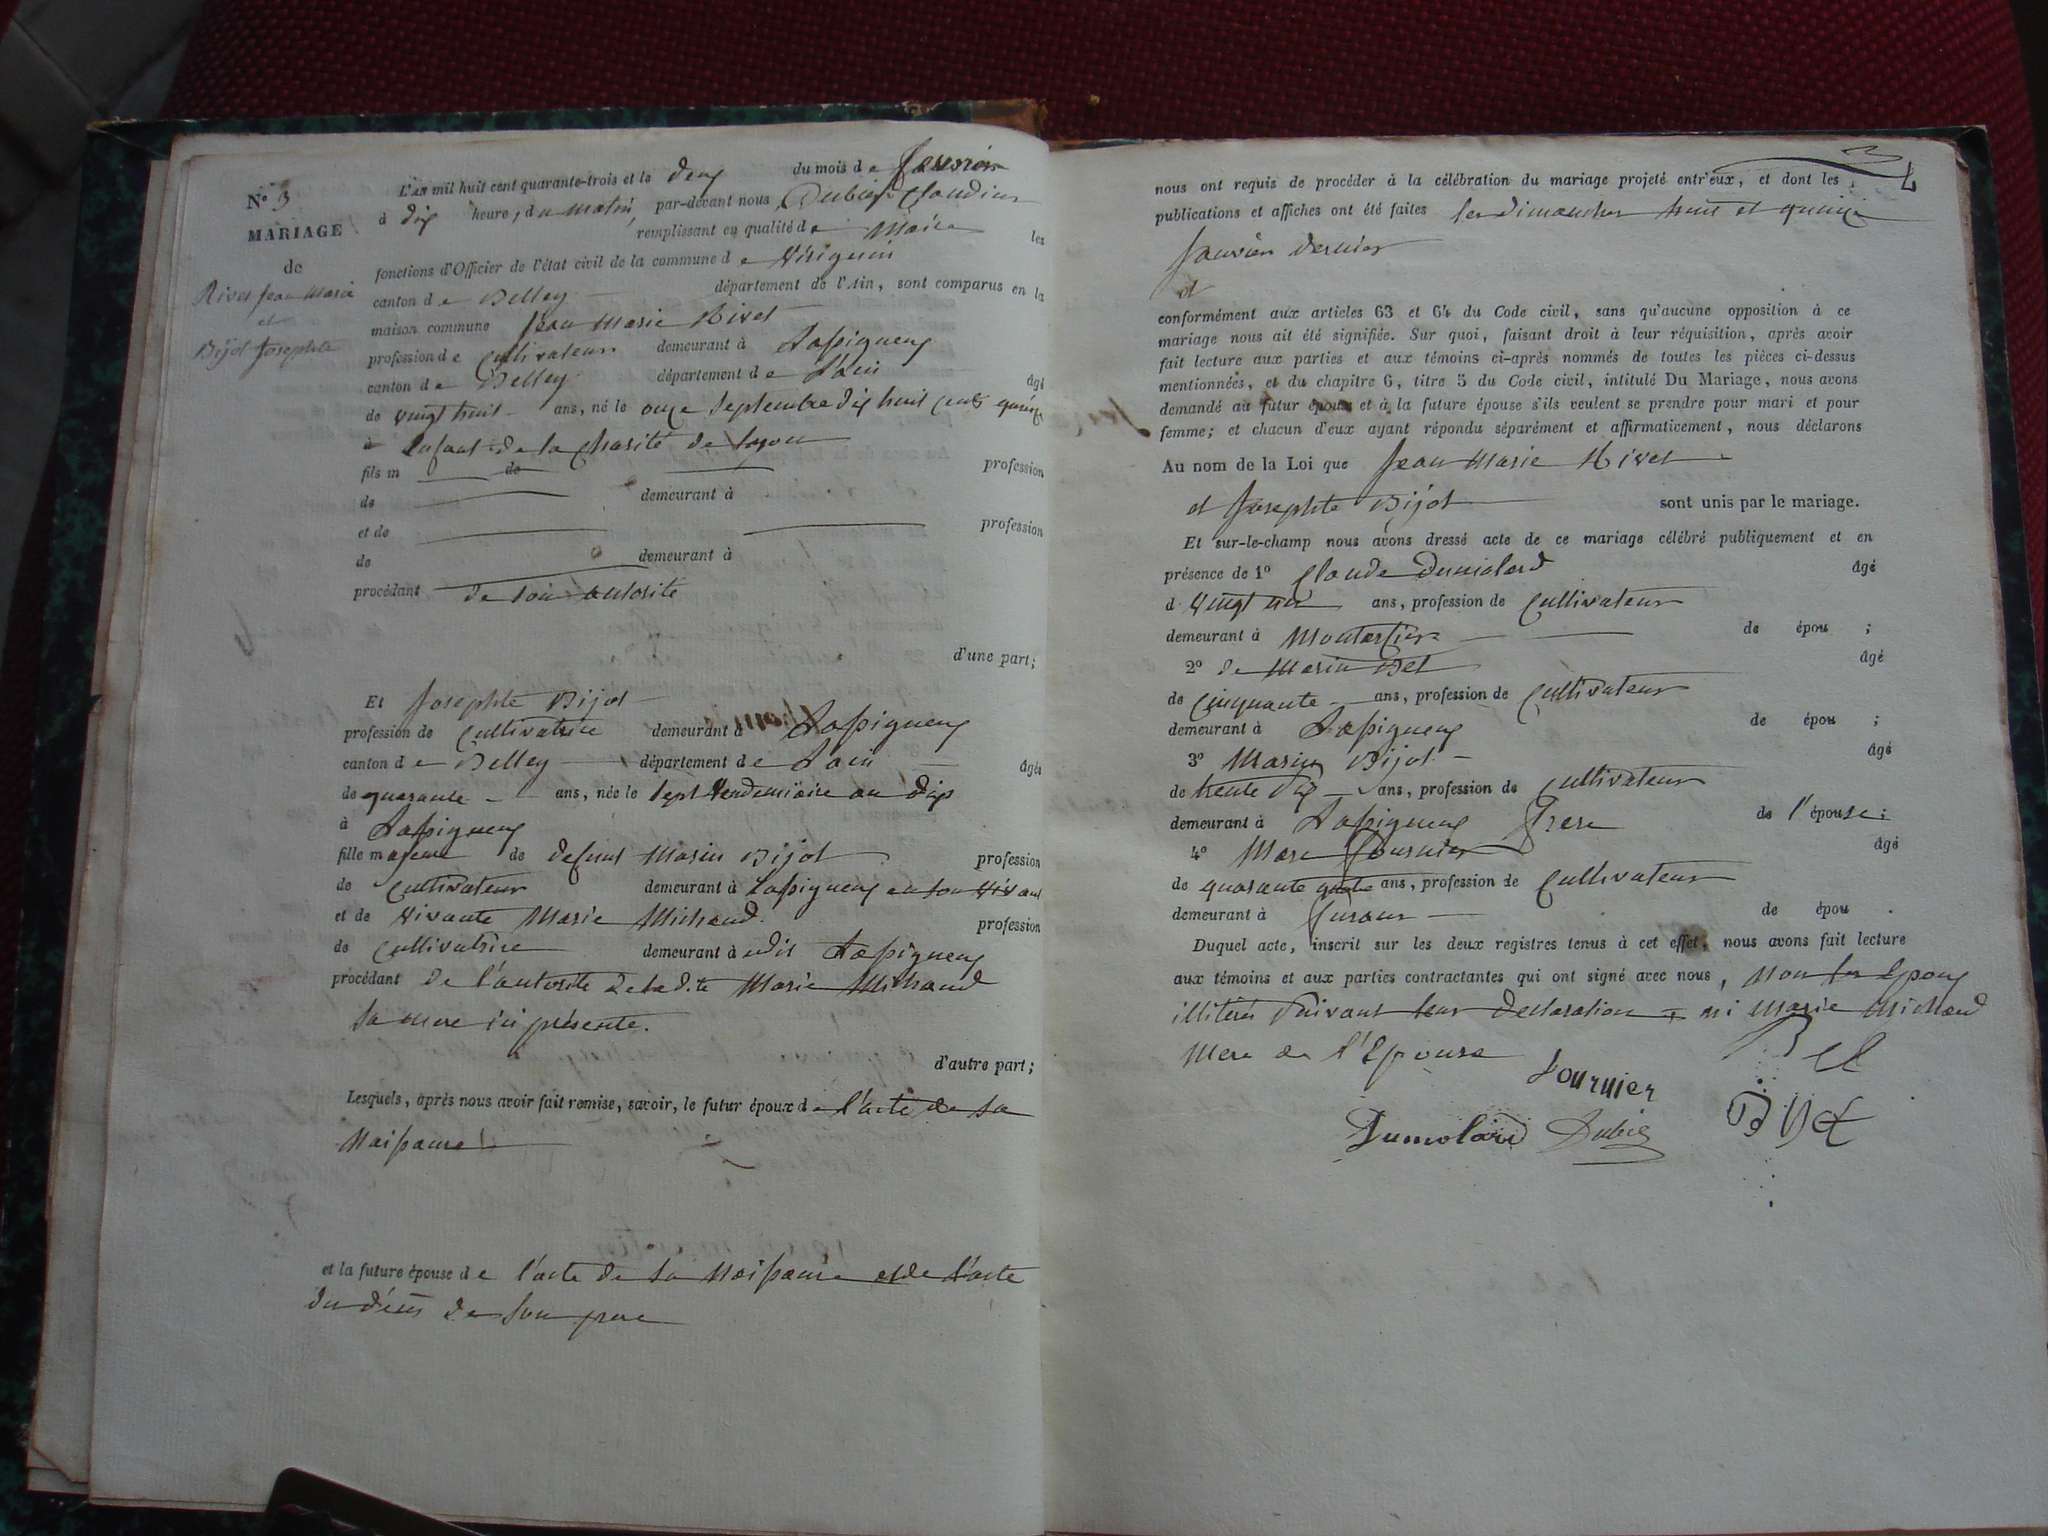 N° 3
MARIAGE
de
Rivet Jean Marie
et
Bijot Josephte
L'an mil huit cent quarante-trois et le deux du mois de fevrier
à dix heures du matin, par-devant nous Dubiez Claudius
remplissant en qualité de Maire les
fonctions d'Officier de l'état civil de la commune de Virignin
canton de Belley département de l'Ain, sont comparus en la
maison commune Jean Marie Rivet
profession de Cultivateur demeurant à Lassignieu
canton de Belley département de l'ain âgé
de vingt huit ans, né le onze Septembre dix huit cents
à Enfant de la Charité de Lyon
fils m de profession
de demeurant à
et de profession
de demeurant à
procédant de son autorité
d'une part;
Et Josephte Bijot
profession de Cultivatrice demeurant à Lassignieu
canton de Belley département de Lain âgée
de quarante ans, née le Sept Vendemiaire an dix
à Lassignieu
fille majeure de defunt Marin Bijot profession
de Cultivateur demeurant à Lassignieu en son vivant
et de vivante Marie Michaud profession
de Cultivatrice demeurant à udit Lassignieu
procédant de l'autorité de ladite Marie Michaud
sa mere ici présente.
d'autre part;
Lesquels, après nous avoir fait remise, savoir, le futur époux de l'acte de sa
Naissance
et la future épouse de l'acte de sa Naissance et de l'acte
du décès de son pere
nous ont requis de procéder à la célébration du mariage projeté entr'eux, et dont les
publications et affiches ont été faites les dimanches huit et quinze
Janvier dernier
et
conformément aux articles 63 et 64 du Code civil, sans qu'aucune opposition à ce
mariage nous ait été signifiée. Sur quoi, faisant droit à leur réquisition, après avoir
fait lecture aux parties et aux témoins ci-après nommés de toutes les pièces ci-dessus
mentionnées, et du chapitre 6, titre 5 du Code civil, intitulé Du Mariage, nous avons
demandé au futur époux et à la future épouse s'ils veulent se prendre pour mari et pour
femme; et chacun d'eux ayant répondu séparément et affirmativement, nous déclarons
Au nom de la Loi que Jean Marie Rivet
et Josephte Bijot sont unis par le mariage.
Et sur-le-champ nous avons dressé acte de ce mariage célébré publiquement et en
présence de 1° Claude Dumolard âgé
d vingt ans, profession de Cultivateur
demeurant à de épou ;
2° de Marin Bet âgé
de Cinquante ans, profession de Cultivateur
demeurant à Lassignieu de épou ;
3° Marin Bijot âgé
de trente dix ans, profession de Cultivateur
demeurant à Lassignieu frere de l'épouse;
4° Marc Fournier âgé
de quarante quatre ans, profession de Cultivateur
demeurant à de épou .
Duquel acte, inscrit sur les deux registres tenus à cet effet, nous avons fait lecture
aux témoins et aux parties contractantes qui ont signé avec nous, Non les Epoux
illitérés suivant leur declaration ni Marie Michaud
Mere de l'Epouse
Bet
Fournier
Dumolard Dubiez